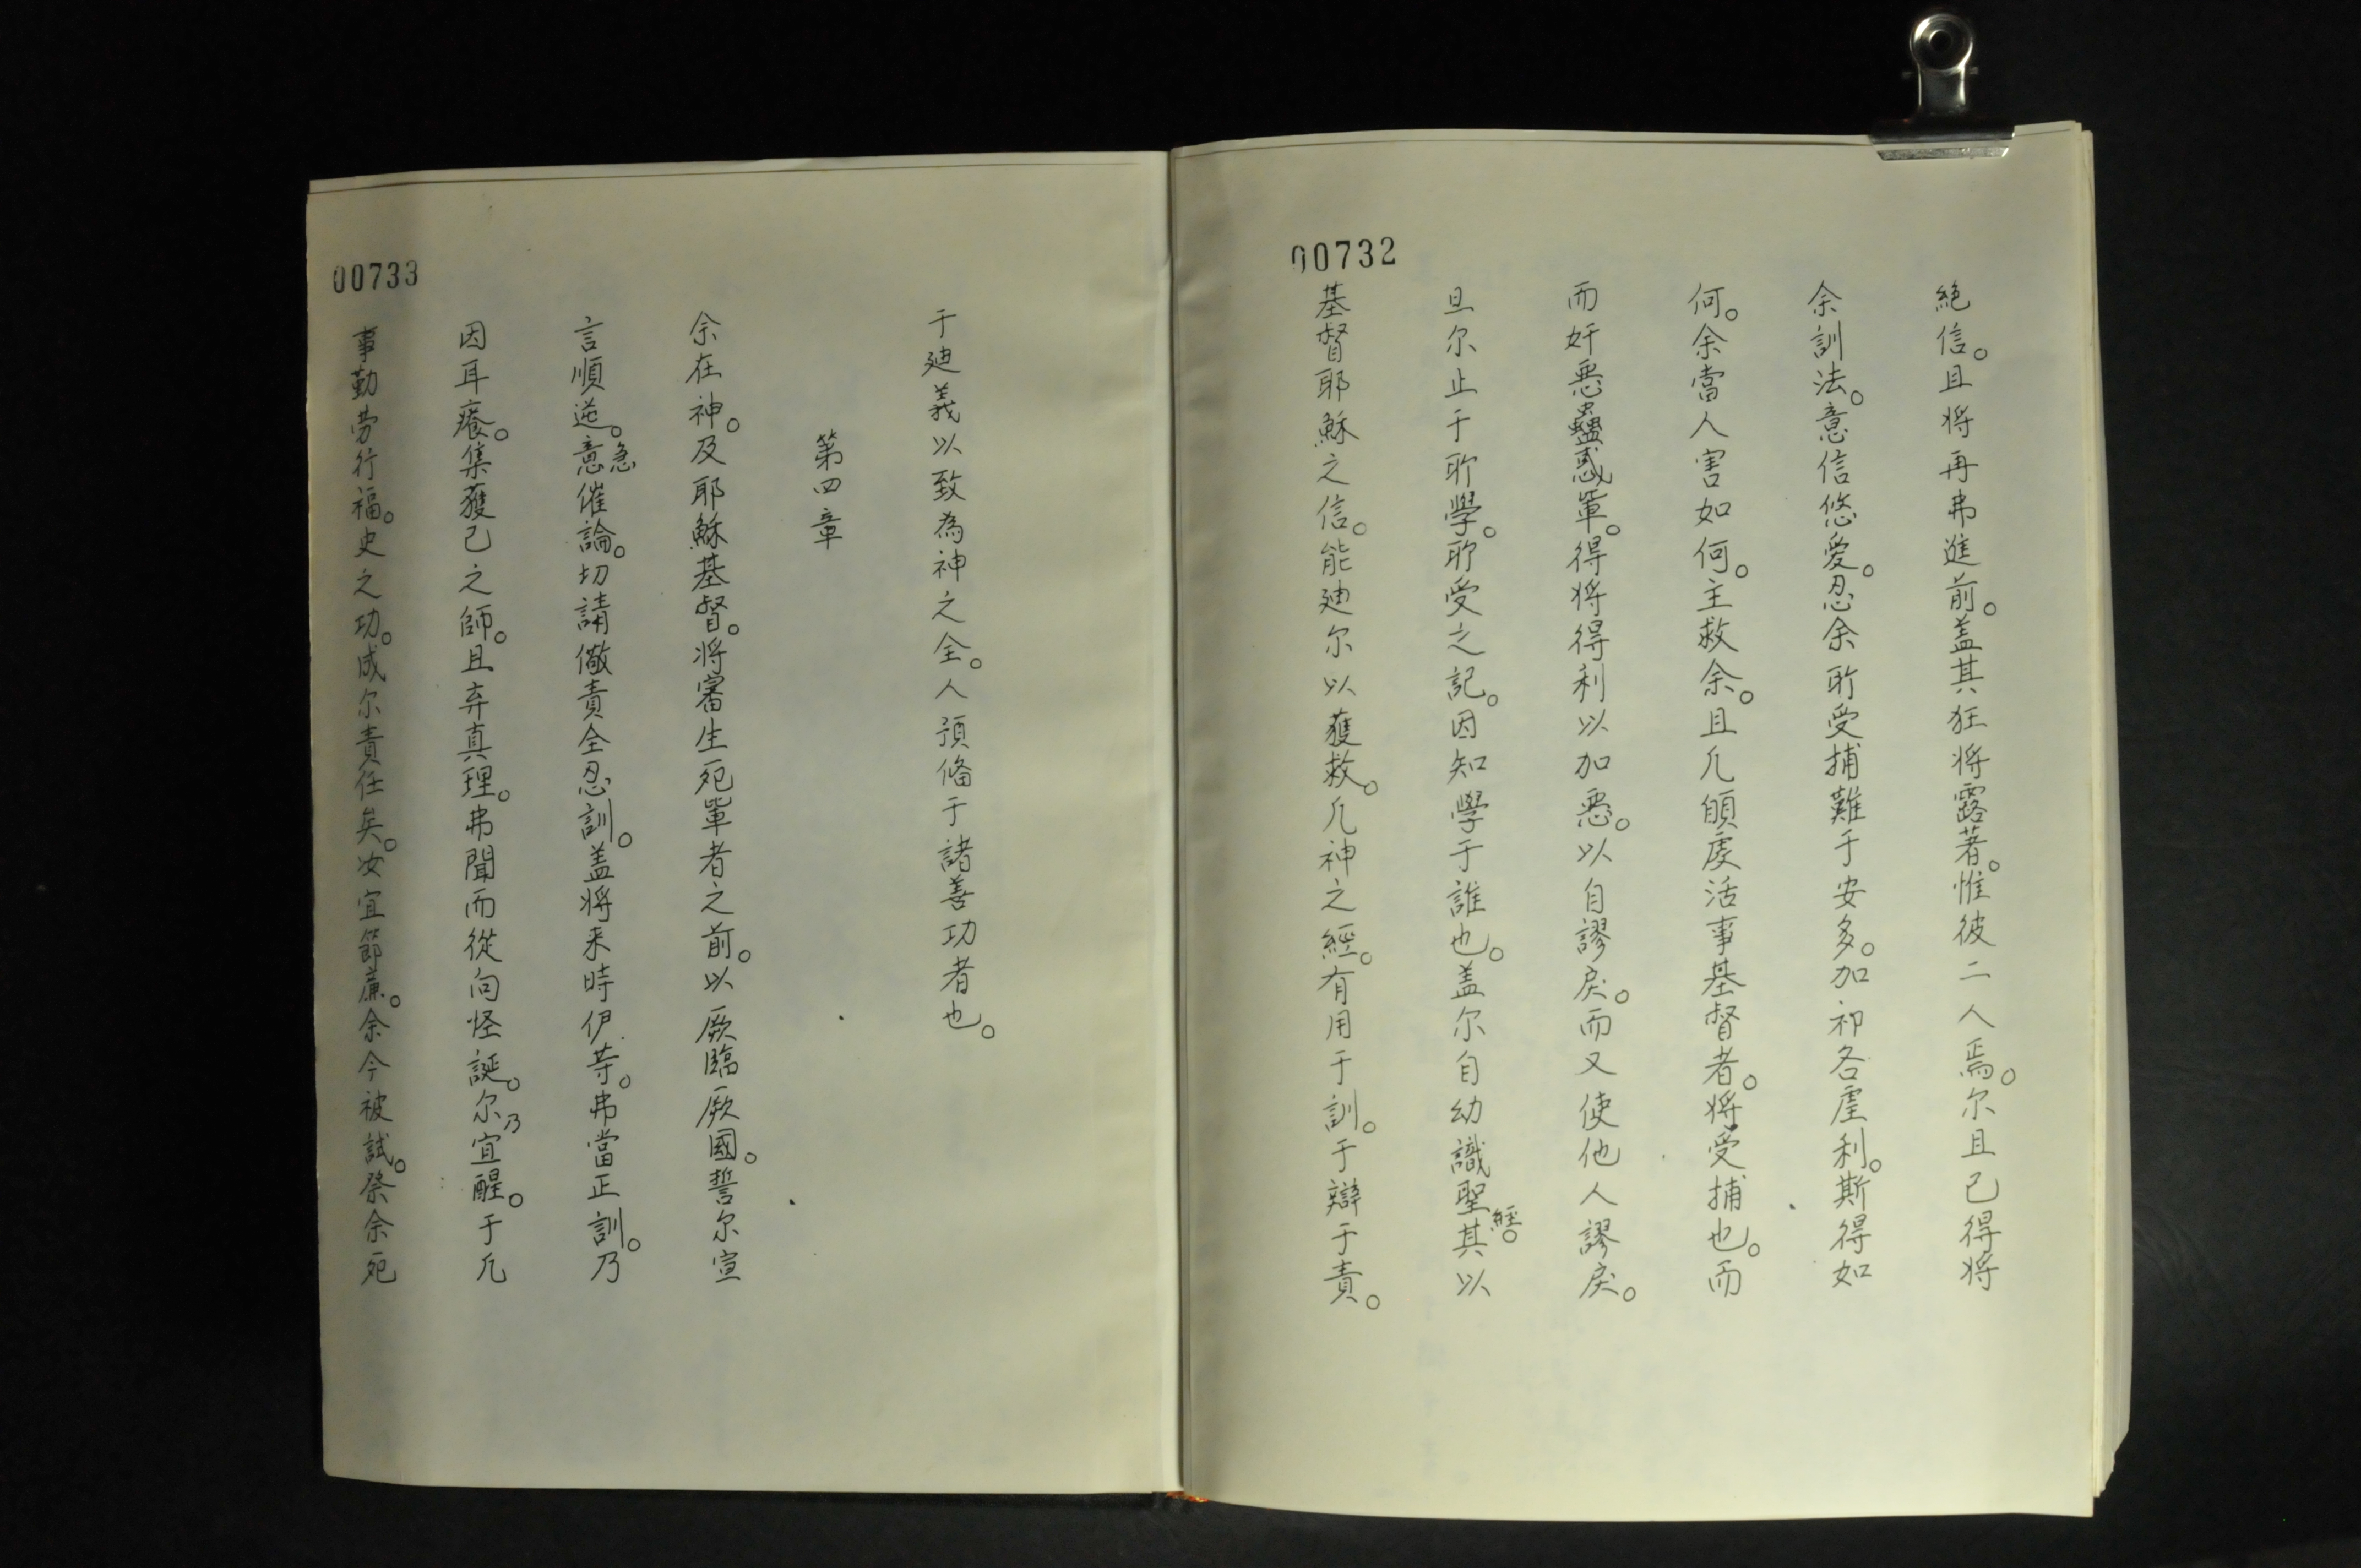 00732
絶信。且将再弗進前。盖其狂将露著。惟彼二人焉。尔且已得将
余訓法。意信悠愛。忍余所受捕難于安多。加祁各虐利。斯得如
何。余當人害如何。主救余。且凢頋虔活事基督者。将受捕也。而
而奸恶蠱惑軰。得将得利以加恶。以自謬戾。而又使他人謬戾。
旦尔止于所學。所受之記。因知學于誰也。盖尔自幼識聖經。其以
基督耶穌之信。能廸尔以獲救。凢神之經。有用于訓。于辯于責。
00733
于廸義以致為神之全。人預俻于諸善功者也。
第四章
余在神。及耶穌基督。将審生死軰者之前。以厥臨厥國。誓尔宣
言順逆。意急催論。切請儆責全忍訓。盖将来時伊等。弗當正訓。乃
因耳癢。集獲己之師。且弃真理。弗聞而從向怪誕。尔乃宜醒。于凢
事勤劳行福。史之功。成尔責任矣。汝宜節廉。余今被試。祭余死